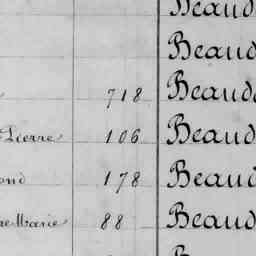 Beaud
Beaud
718 Beaud
Pierre 106 Beaud
ond 178 Beaud
Marie 88 Beaud